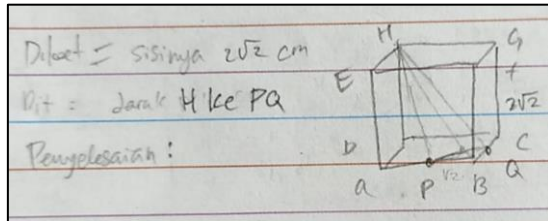 Diket = sisinya 2√2 cm
Dit = Jarak H ke PQ
Penyelesaian :
H
G
E
F
2√2
D
C
Q
a
P
√2
B